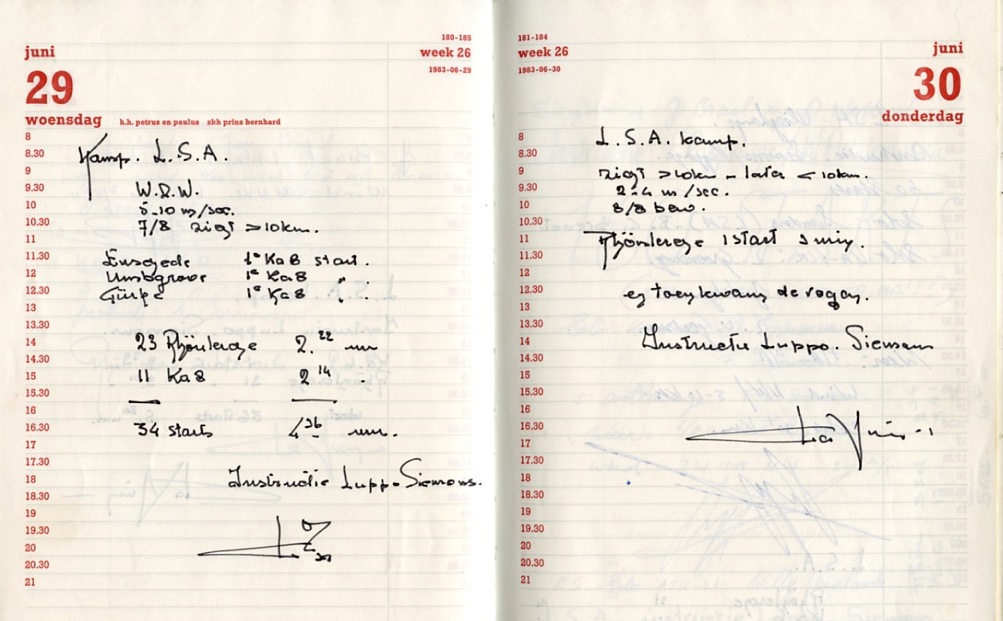 juni
180-185
week 26
1983-06-29
29
woensdag h.h. petrus en paulus zkh prins bernhard
8
8.30 Kamp. L.S.A.
9
9.30 W.Z.W.
10 5-10 m/sec.
10.30 7/8 zigt >10km.
11
11.30 Enségede 1e Ka8 start.
12 1e Ka8 " .
12.30 1e Ka8 " .
13
13.30
14 23 Rhönlerge 2.22 uur
14.30
15 11 Ka8 2 14 .
15.30
16
16.30 34 starts 4 36 uur.
17
17.30
18 Instructie Luppo-Siemons.
18.30
19
19.30
20
20.30
21
181-184
week 26
1983-06-30
juni
30
donderdag
8
8.30 L.S.A. kamp.
9 zigt >10km - later <10km.
9.30 2-4 m/sec.
10 8/8 bew.
10.30
11 Rhönlerge 1 start 5 min.
11.30
12
12.30 en toen kwam de regen.
13
13.30
14 Instructie Luppo. Siemons
14.30
15
15.30
16
16.30
17
17.30
18
18.30
19
19.30
20
20.30
21